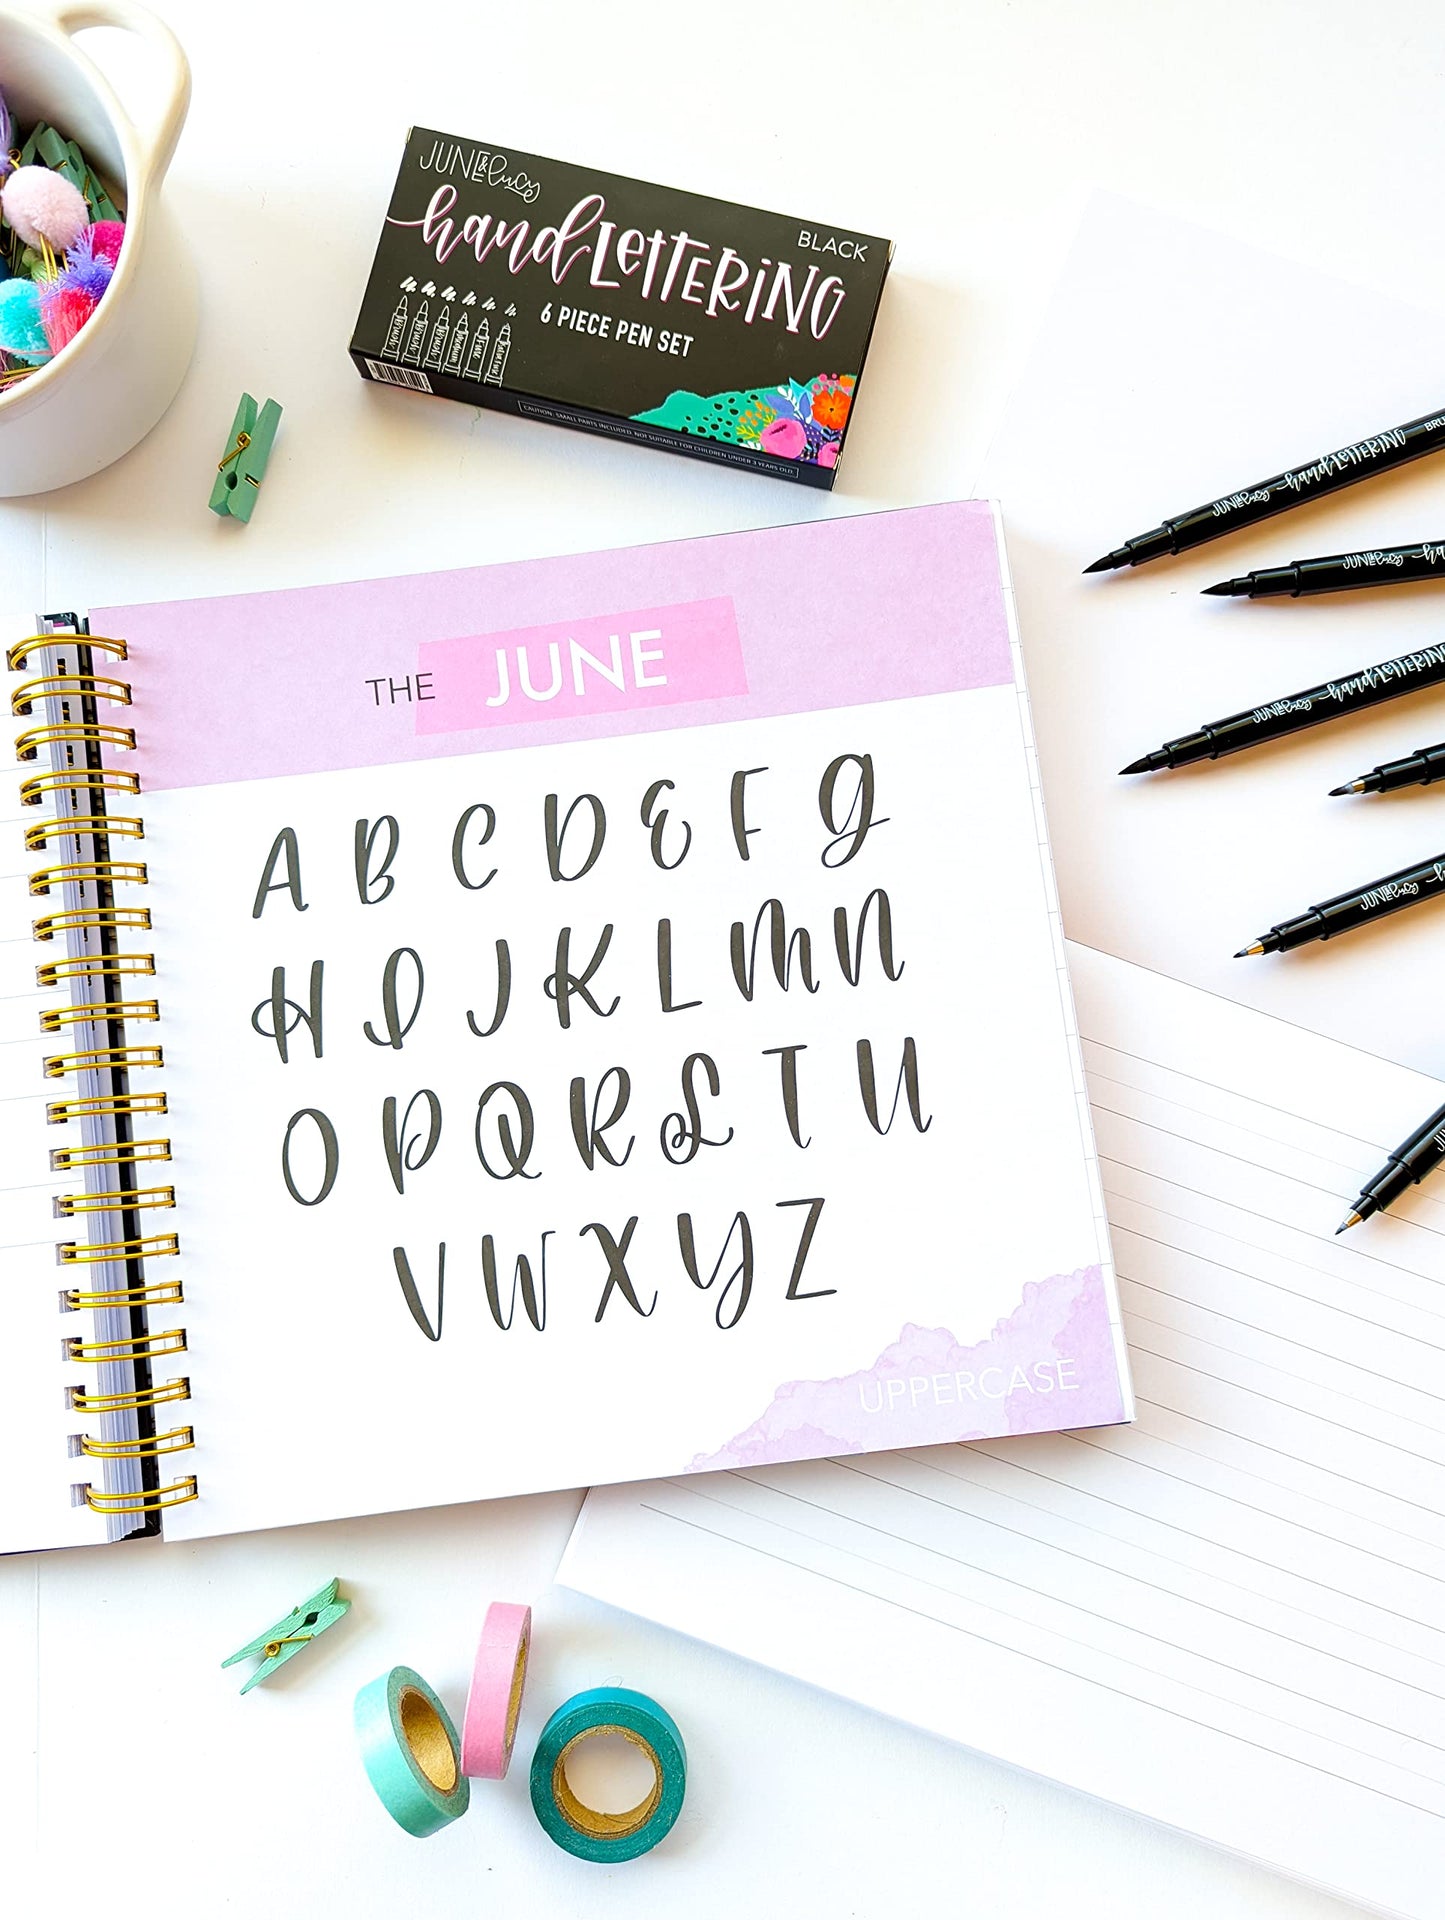 JUNE & lucy
BLACK
hand LETTERING
6 PIECE PEN SET
CAUTION: SMALL PARTS INCLUDED. NOT SUITABLE FOR CHILDREN UNDER 3 YEARS OLD.
THE JUNE
A B C D E F G
H I J K L M N
O P Q R S T U
V W X Y Z
UPPERCASE
JUNE & lucy hand LETTERING BRU
JUNE & lucy ha
JUNE & lucy hand LETTERING
JUNE & lucy h
JU